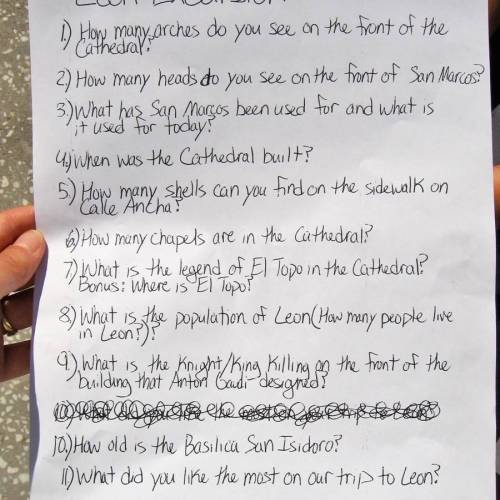 Leon Excursion
1.) How many arches do you see on the front of the
Cathedral?
2.) How many heads do you see on the front of San Marcos?
3.) What has San Marcos been used for and what is
it used for today?
4.) When was the Cathedral built?
5.) How many shells can you find on the sidewalk on
Calle Ancha?
6.) How many chapels are in the Cathedral?
7.) What is the legend of El Topo in the Cathedral?
Bonus: Where is El Topo?
8.) What is the population of Leon (How many people live
in Leon?)?
9.) What is the Knight/King Killing on the front of the
building that Anton Gaudi designed?
10.) How old is the Basilica San Isidoro?
11.) What did you like the most on our trip to Leon?